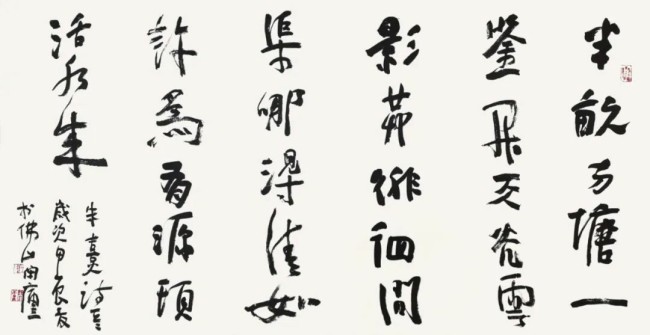 半畝方塘一
鑒開天光雲
影共徘徊問
渠哪得清如
許為有源頭
活水来
朱熹诗
歲次甲辰夏
於佛山